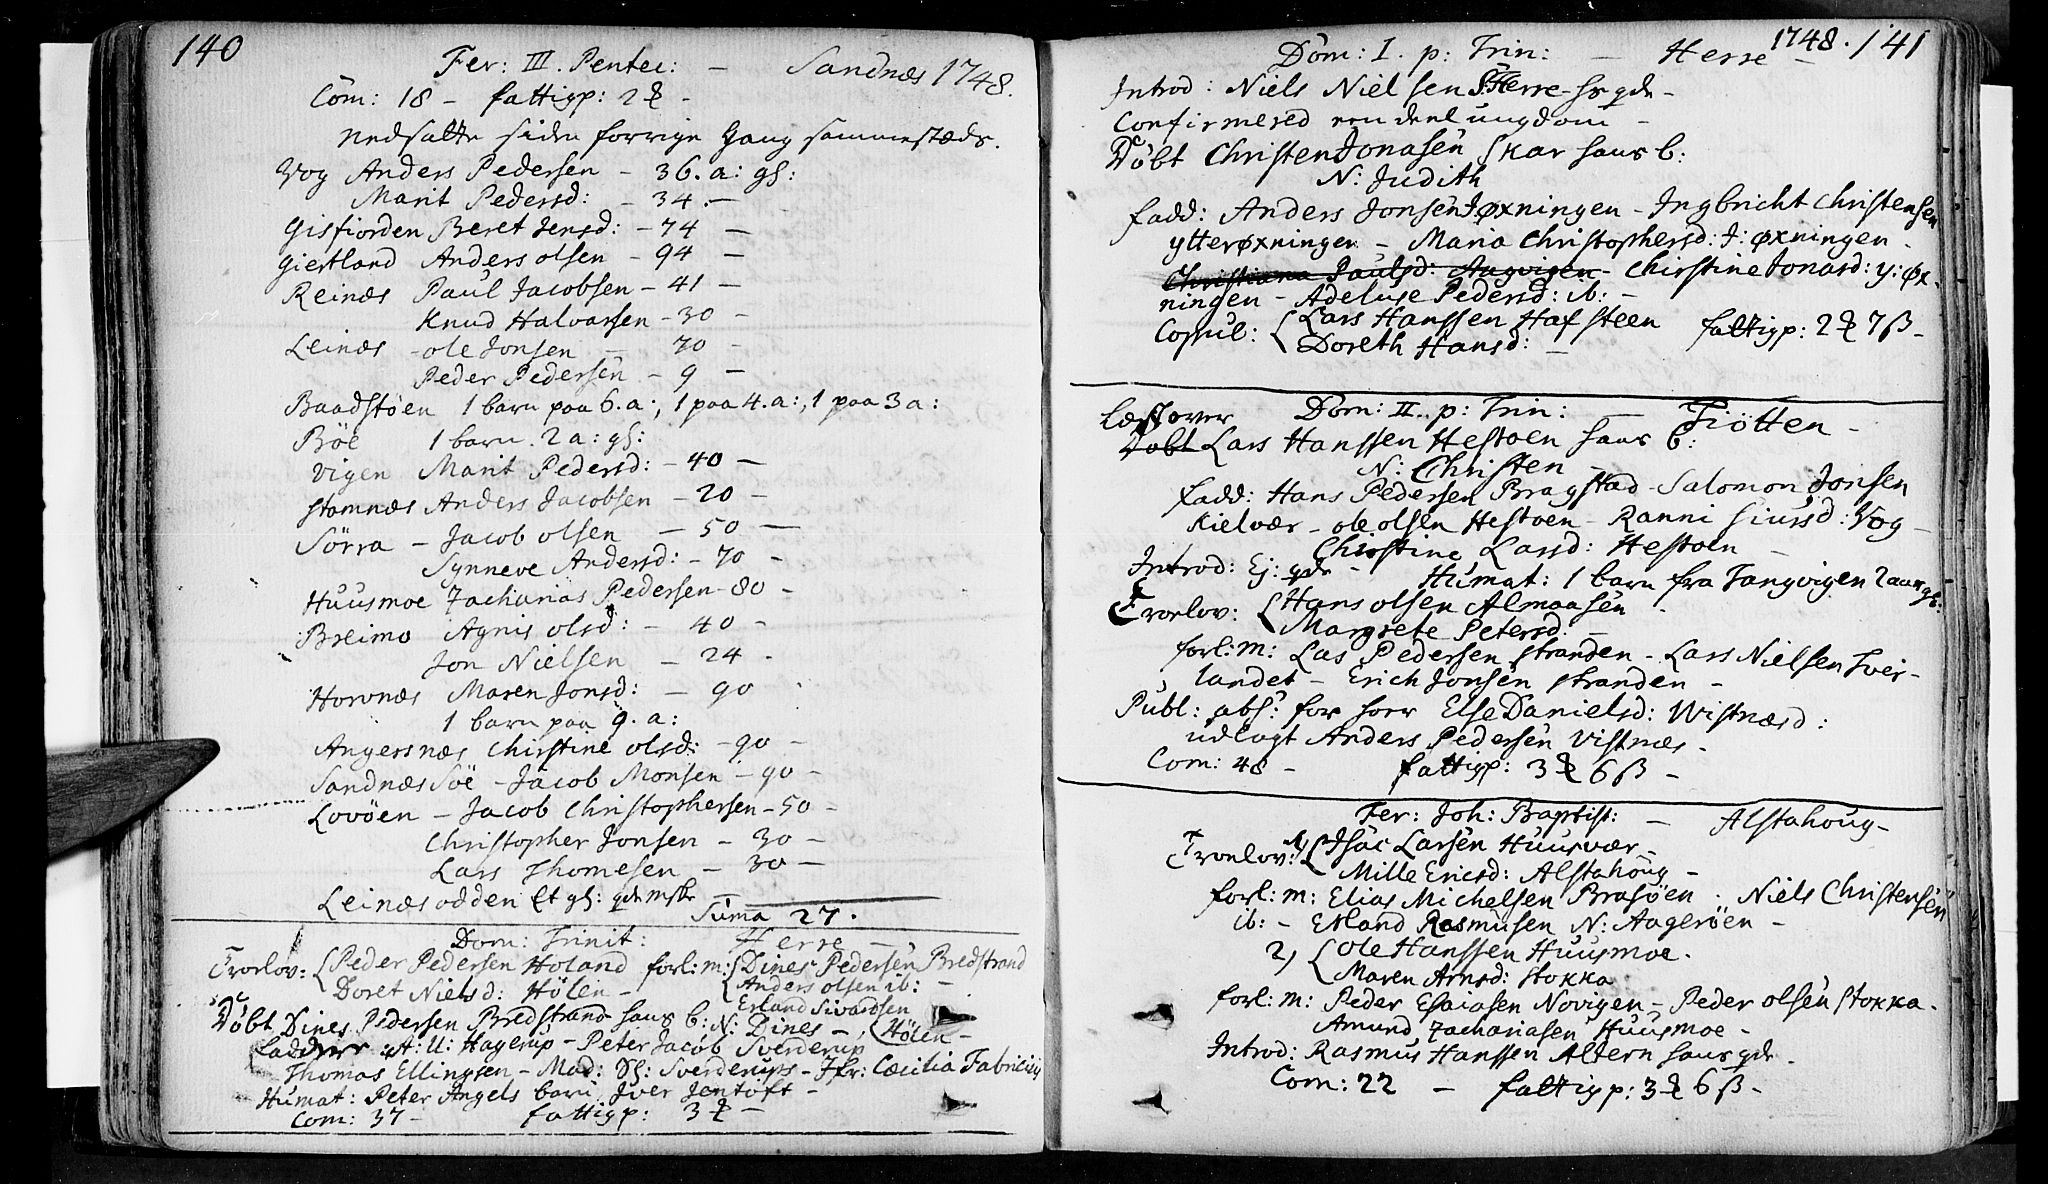 140
Fer: III. Pentec: – Sandnæs 1748.
Com: 18 – fattigp: 2 –
Nedsatte siden forrige Gang sammestæds.
Vog Anders Pedersen – 36. a: gl:
Marit Pedersd: – 34. –
Gisfiorden Beret Jensd: – 74 –
Giestland Anders olsen – 94 –
Reinæs Paul Jacobsen – 41 –
Knud Halvarsen – 30 –
Leinæs – ole Jonsen – 70 –
Peder Pedersen – 9 –
Baadstöen 1 barn paa 6. a:, 1 paa 4. a:, 1 paa 3 a:
Böe 1 barn. 2 a: gl:
Vigen Marit Pedersd: – 40 –
Stamnæs Anders Jacobsen – 20 –
Sörra – Jacob olsen – 50 –
Synneve Andersd: – 70 –
Huusmoe Zacharias Pedersen – 80 –
Breimo Agnis olsd: – 40 –
Jon Nielsen – 24 –
Horvnæs Maren Jonsd: – 90
1 barn paa 9. a:
Angersnæs Christine olsd: – 90 –
Sandnæs Söe – Jacob Monsen – 90 –
Lovöen – Jacob Christophersen – 50 –
Christopher Jonsen – 30 –
Lars Thomesen – 30 –
Leinæsodden Et gl: qvindemske –
Suma 27.
Dom: Trinit: Herre –
Troelov: Peder Pedersen Holand forl: m: Dines Pedersen Bredstrand
Doret Nielsd: Hölen – Anders olsen ib: –
Erland Sivardsen
Döbt Dines Pedersen Bredstrand hans b: N: Dines – Hölen –
Faddere: A: U: Hagerup – Peter Jacob Sverderup
Thomas Ellingsen – Mad: Sl: Sverderups – Jfr: Cæcilia Fabricius
Humat: Peter Angels barn Iver Jentoft –
Com: 37 – fattigp: 3 –
1748. 141
Dom: I. p: Trin: – Herre –
Introd: Niels Nielsen S: Herre hs qde –
Confirmered een deel ungdom –
Döbt Christen Jonasen Skar hans b:
N: Judith
fadd: Anders Jonsen I øxningen – Ingbricht Christensen
ytterøxningen – Maria Christophersd: I: øxningen –
Christiana Paulsd: Aagvigen – Christine Jonasd: y: øx-
ningen – Adeluse Pedersd: ib: –
Copul: Lars Hanssen Hafsteen fattigp: 2 7 ß –
Doreth Hansd: –
Dom: II. p: Trin: – Tiötten –
læst over
Döbt Lars Hanssen Hestøen hans b:
N: Christen –
Fadd: Hans Pedersen Bragstad – Salomon Jonsen
Kielvær – ole olsen Hestøen – Ranni Siursd: Vog –
Christine Larsd: Hestøen –
Introd: Ej: qde – Humat: 1 barn fra Tangvigen 2 aar gl:
Troelov: Hans olsen Almaasen –
Margrete Petersd. –
forl: m: Las Pedersen stranden – Lars Nielsen Tver-
landet – Erich Jonsen stranden –
Publ: abs: for hoer Else Danielsd: Wistnæsd:
udlagt Anders Pedersen Vistnæs –
Com: 48 – fattigp: 3 6 ß –
Fer: Joh: Baptist: – Alstahoug –
Troelov: 1) Isac Larsen Huusvær –
Mille Ericsd: Alstahoug –
forl: m: Elias Michelsen Brasöen . Niels Christensen
ib: – Erland Rasmusen N: Aagerøen –
2, Ole Hanssen Huusmoe.
Maren Arnsd: Stokka
forl: m: Peder Esaiasen Novigen – Peder olsen Stokka –
Amund Zachariasen Huusmoe –
Introd: Rasmus Hanssen Altern hans qde –
Com: 22 – fattigp: 3 6 ß –